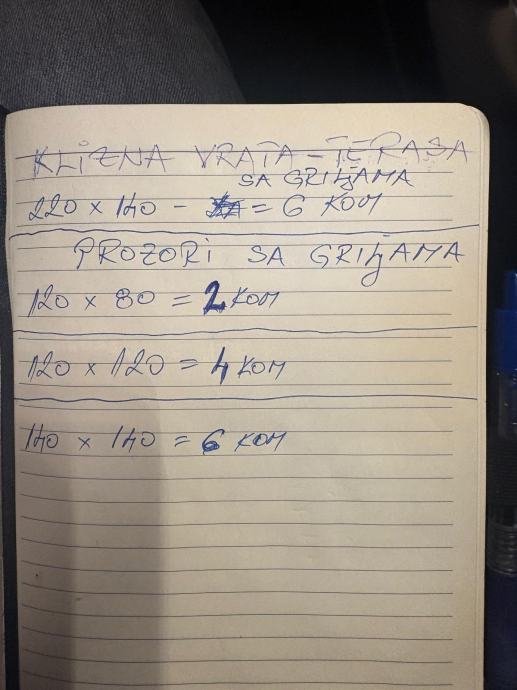 KLIZNA VRATA - TERASA
SA GRILJAMA
220 x 140 - = 6 KOM
PROZORI SA GRILJAMA
120 x 80 = 2 KOM
120 x 120 = 4 KOM
140 x 140 = 6 KOM